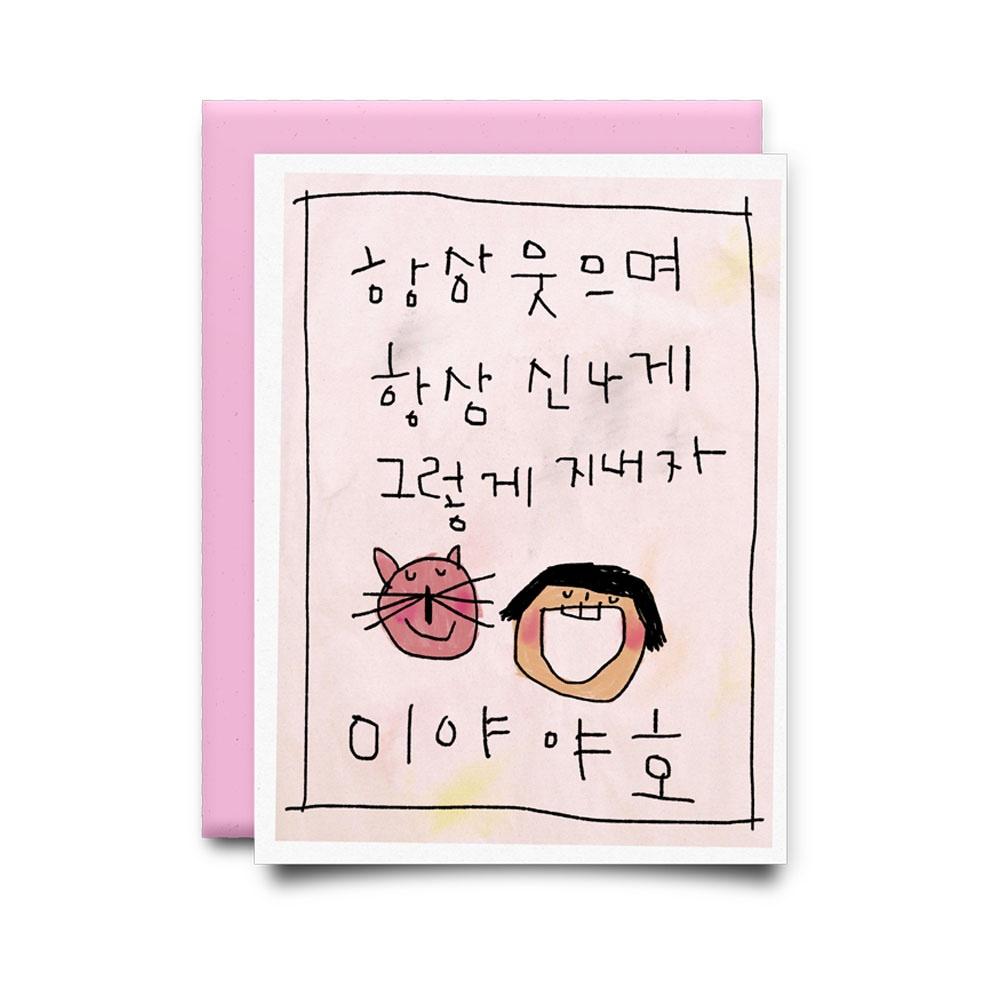 항상 웃으며
항상 신나게
그렇게 지내자
이야 야호